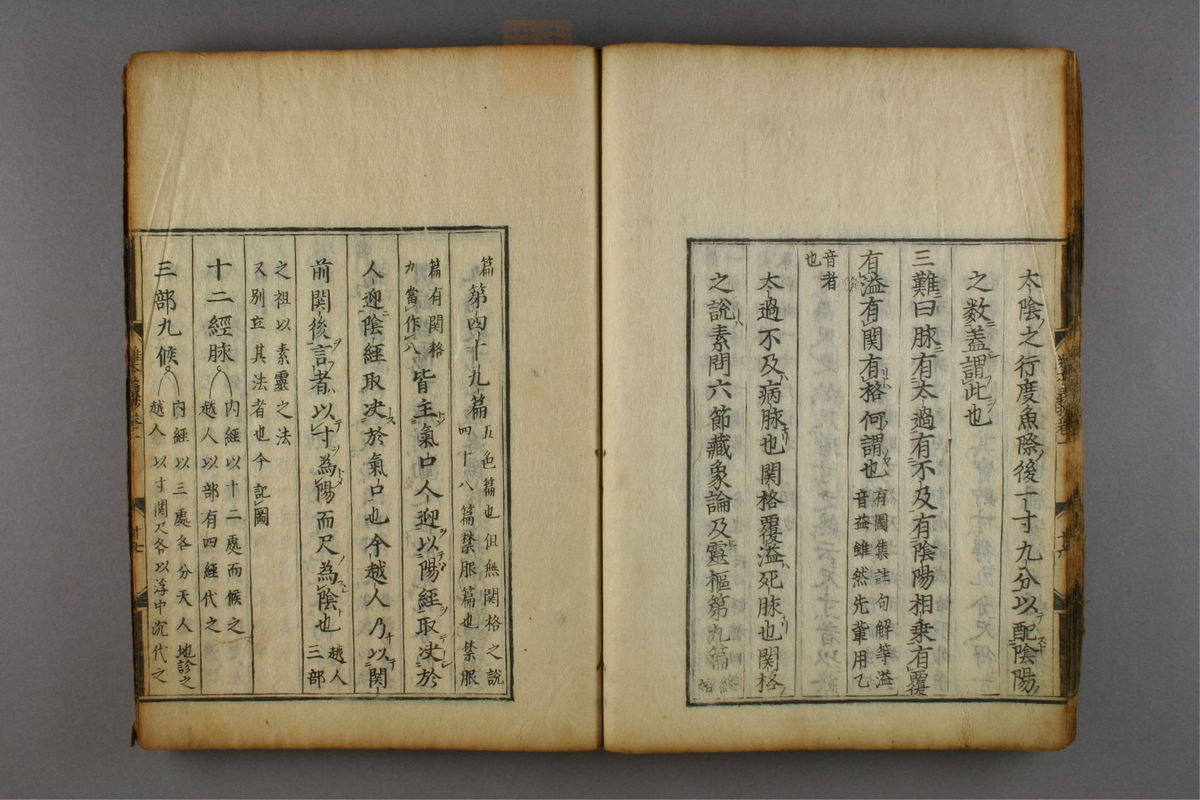 太陰之行度魚際後一寸九分以配陰陽
之数蓋謂此也
三難曰脉有太過有不及有陰陽相乗有覆
有溢有関有格何謂也 有圖集註句解等溢
音益雖然先軰用乙
音者
也
太過不及病脉也関格覆溢死脉也関格
之説素問六節藏象論及霊樞第九篇 終
始
篇 第四十九篇 五色篇也但無関格之説
四十八篇禁服篇也禁服
篇有関格
九當作八 皆主氣口人迎以陽經取决於
人迎陰經取决於氣口也今越人乃以関
前関後言者以寸為陽而尺為陰也 越人
三部
之祖以素霊之法
又別立其法者也今記圖
十二經脉 内經以十二處而候之
越人以部有四經代之
三部九候 内經以三處各分天人地診之
越人以寸関尺各以浮中沉代之